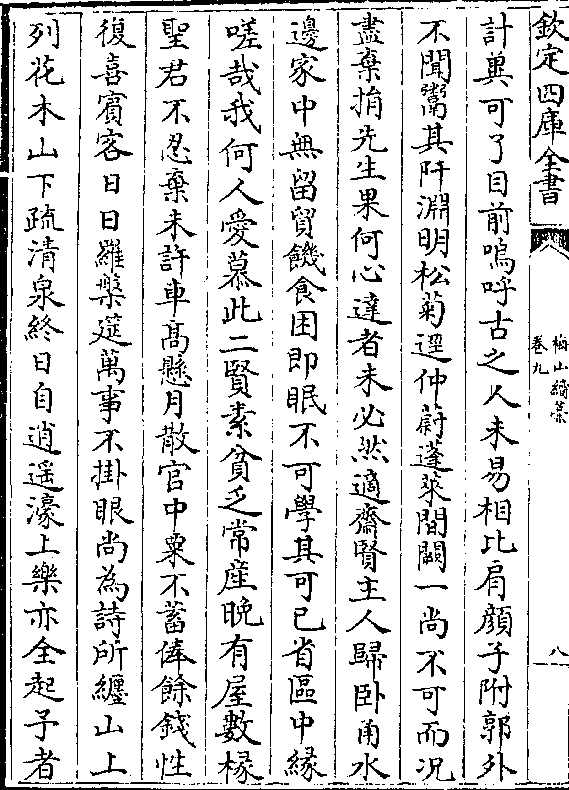 欽定四庫全書
梅山續藁
卷九
八
計異可了目前嗚呼古之人未易相比肩顔子附郭外
不聞鬻其阡淵明松菊逕仲蔚蓬萊間闕一尚不可而况
盡棄捐先生果何心達者未必然適齋賢主人歸卧甬水
邊家中無留貿饑食困即眠不可學其可已省區中緣
嗟哉我何人愛慕此二賢素貧乏常産晚有屋數椽
聖君不忍棄未許車髙懸月散官中粟不蓄俸餘錢性
復喜賓客日日羅樂筵萬事不掛眼尚為詩所纏山上
列花木山下疏清泉終日自逍遥濠上樂亦全起予者